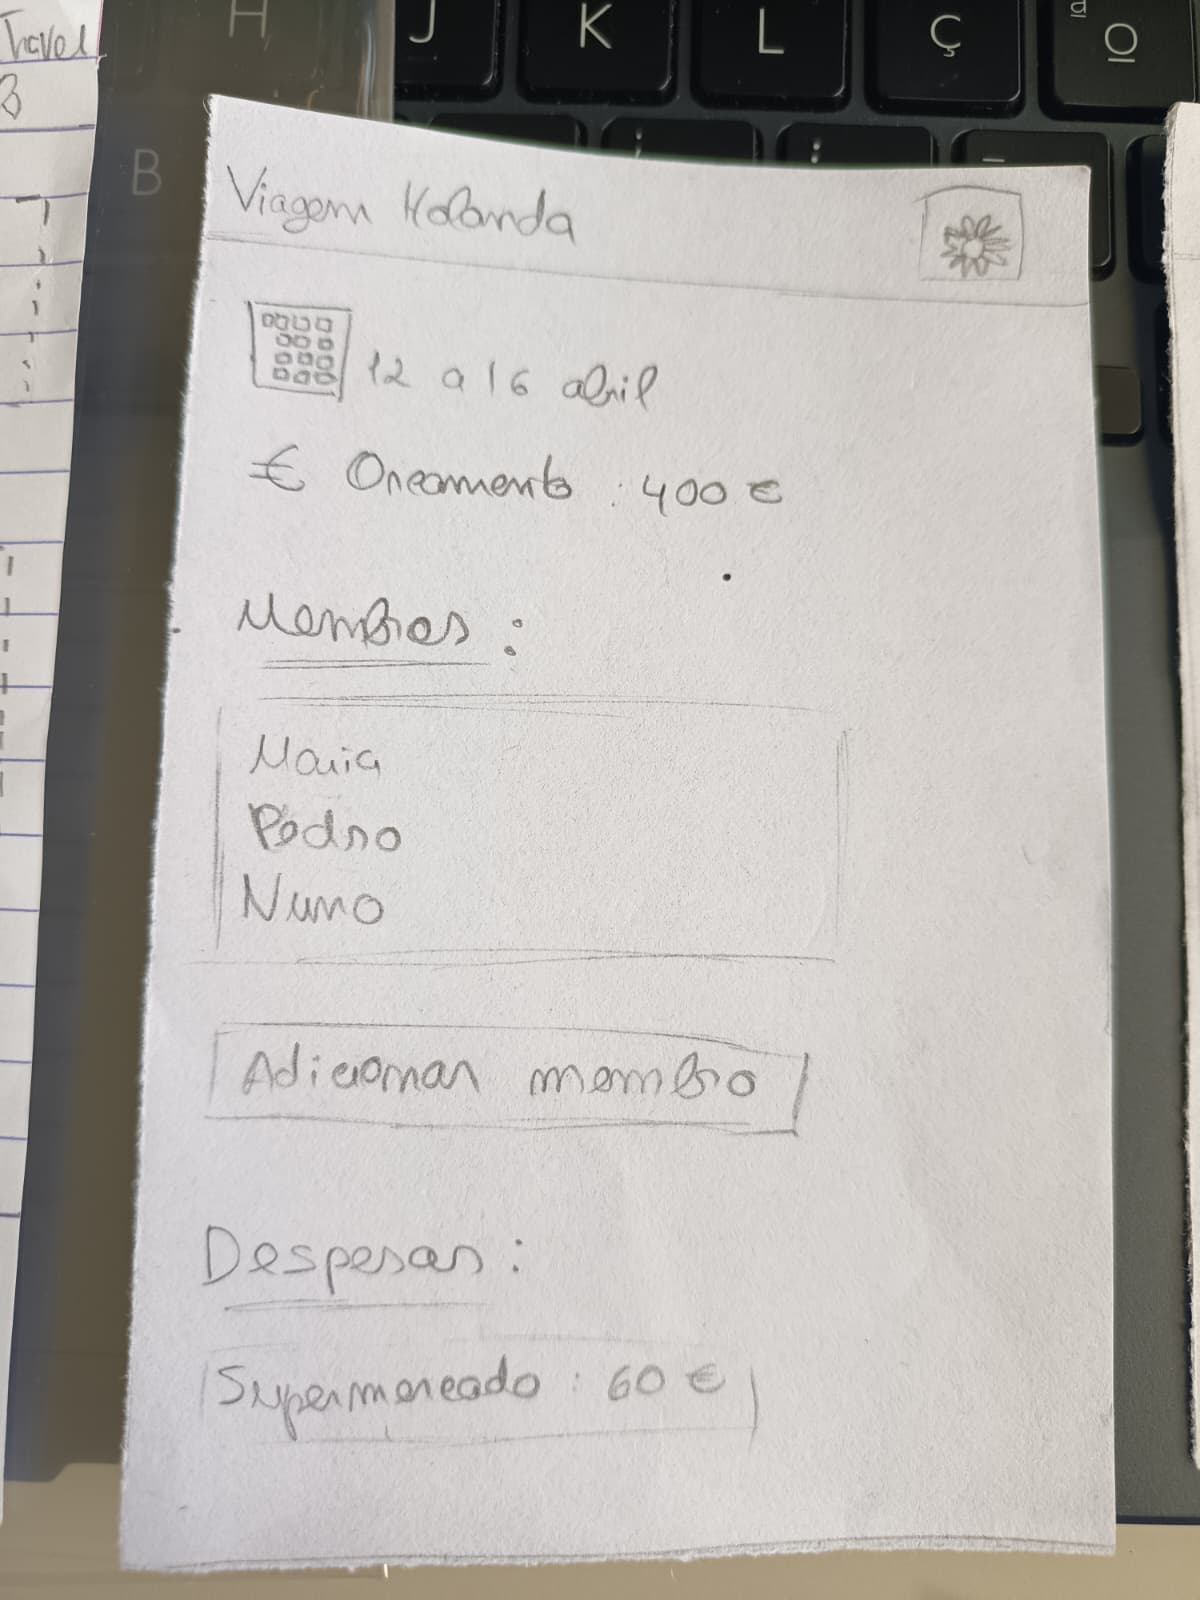 Travel
B
H
J
K
L
Ç
ª
º
B
Viagem Holanda
12 a 16 abril
€ Orcamento : 400 €
Membros :
Maria
Pedro
Nuno
Adicionar membro
Despesas :
Supermercado : 60 €